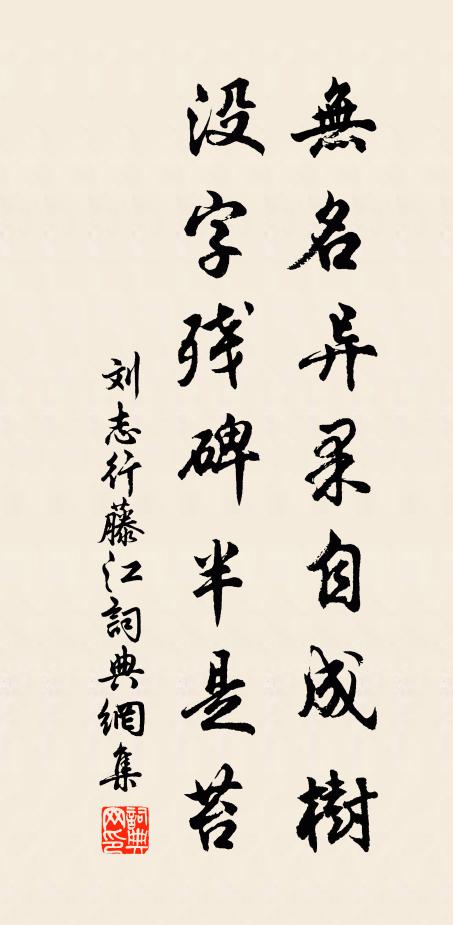 無名异果自成樹
没字残碑半是苔
刘志行藤江詞典網集
詞典网印